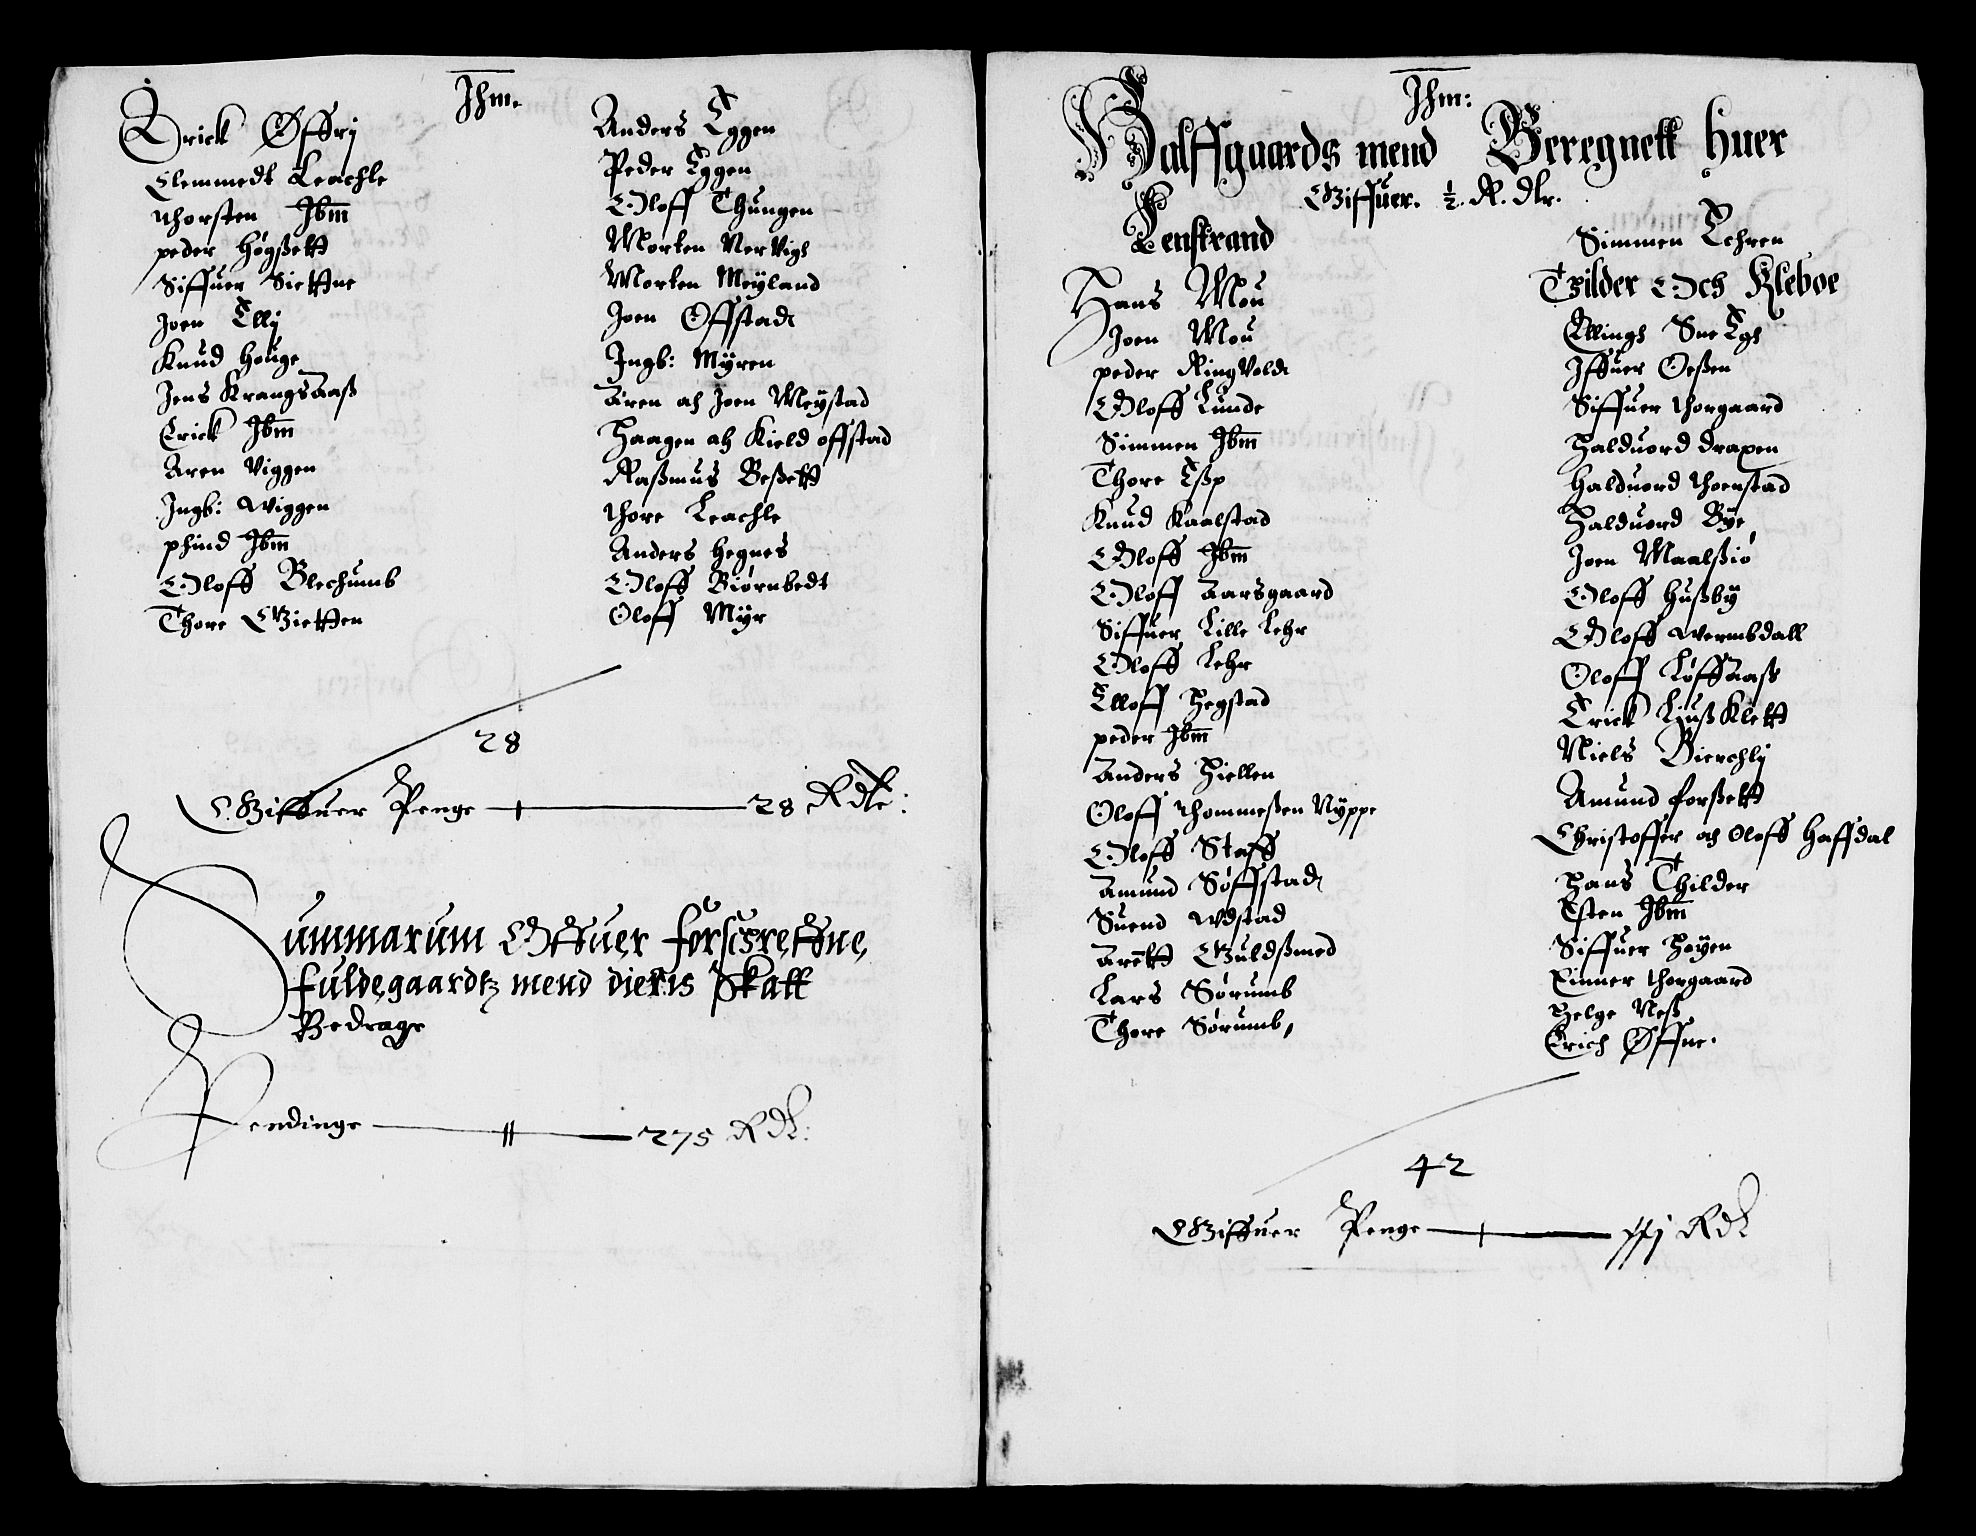 Ihm.
Erick Øffrj
Clemmedt Leachle
Thorsten Ibm
peder Høgßett
Siffuer Siettne
Joen Ellj
Knud Houge
Jens Krangsaaß
Erick Ibm
Aren Viggen
Ingb: Wiggen
phind Ibm
Oloff Blechumb
Thore Gietten
Anders Eggen
Peder Eggen
Oloff Thungen
Morten Nervigh
Morten Meyland
Joen Offstad
Ingb: Myren
Aren och Joen Meystad
Haagen och Kield offstad
Raßmus Beßett
Thore Leachle
Anders Hegnes
Oloff Biørnbedt
Oloff Myr
28
Giffuer Penge 28 Rdlr:
Summarum Offuer forschreffne
fulde gaardtz mend dieris Skatt
Bedrage
Pendinge 275 Rdl:
Ihm:
Halffgaards mend Beregnett huer
Giffuer. ½. R. dlr.
Lenstrand
Hans Mou
Joen Mou
peder Ringvold
Oloff Lunde
Simmen Ibm
Thore Eßp
Knud Kaalstad
Oloff Ibm
Oloff Aarsgaard
Siffuer Lille Lehr
Oloff Lehr
Elloff Hegstad
peder Ibm
Anders Hiellen
Oloff Thommeßen Nyppe
Oloff Staff
Amund Søffstad
Suend Wdstad
Arett Guldßmed
Lars Sørumb
Thore Sørumb,
Simmen Echren
Tilder Och Kleboe
Ellingh Sneegh
Iffuer Oeßen
Siffuer Thorgaard
Halduord draxen
Halduord Thoenstad
Halduord Bye
Joen Maalßiø
Oloff Hußby
Oloff Wermbdall
Oloff Løffaaß
Erick Liußklett
Niels Bierchlj
Amund forßett
Christoffer och Oloff Haffdal
Hans Thilder
Esten Ibm
Siffuer Høyen
Einner Thorgaard
Helge Neß
Erich Øffne.
42
Giffuer Penge xxj Rdl